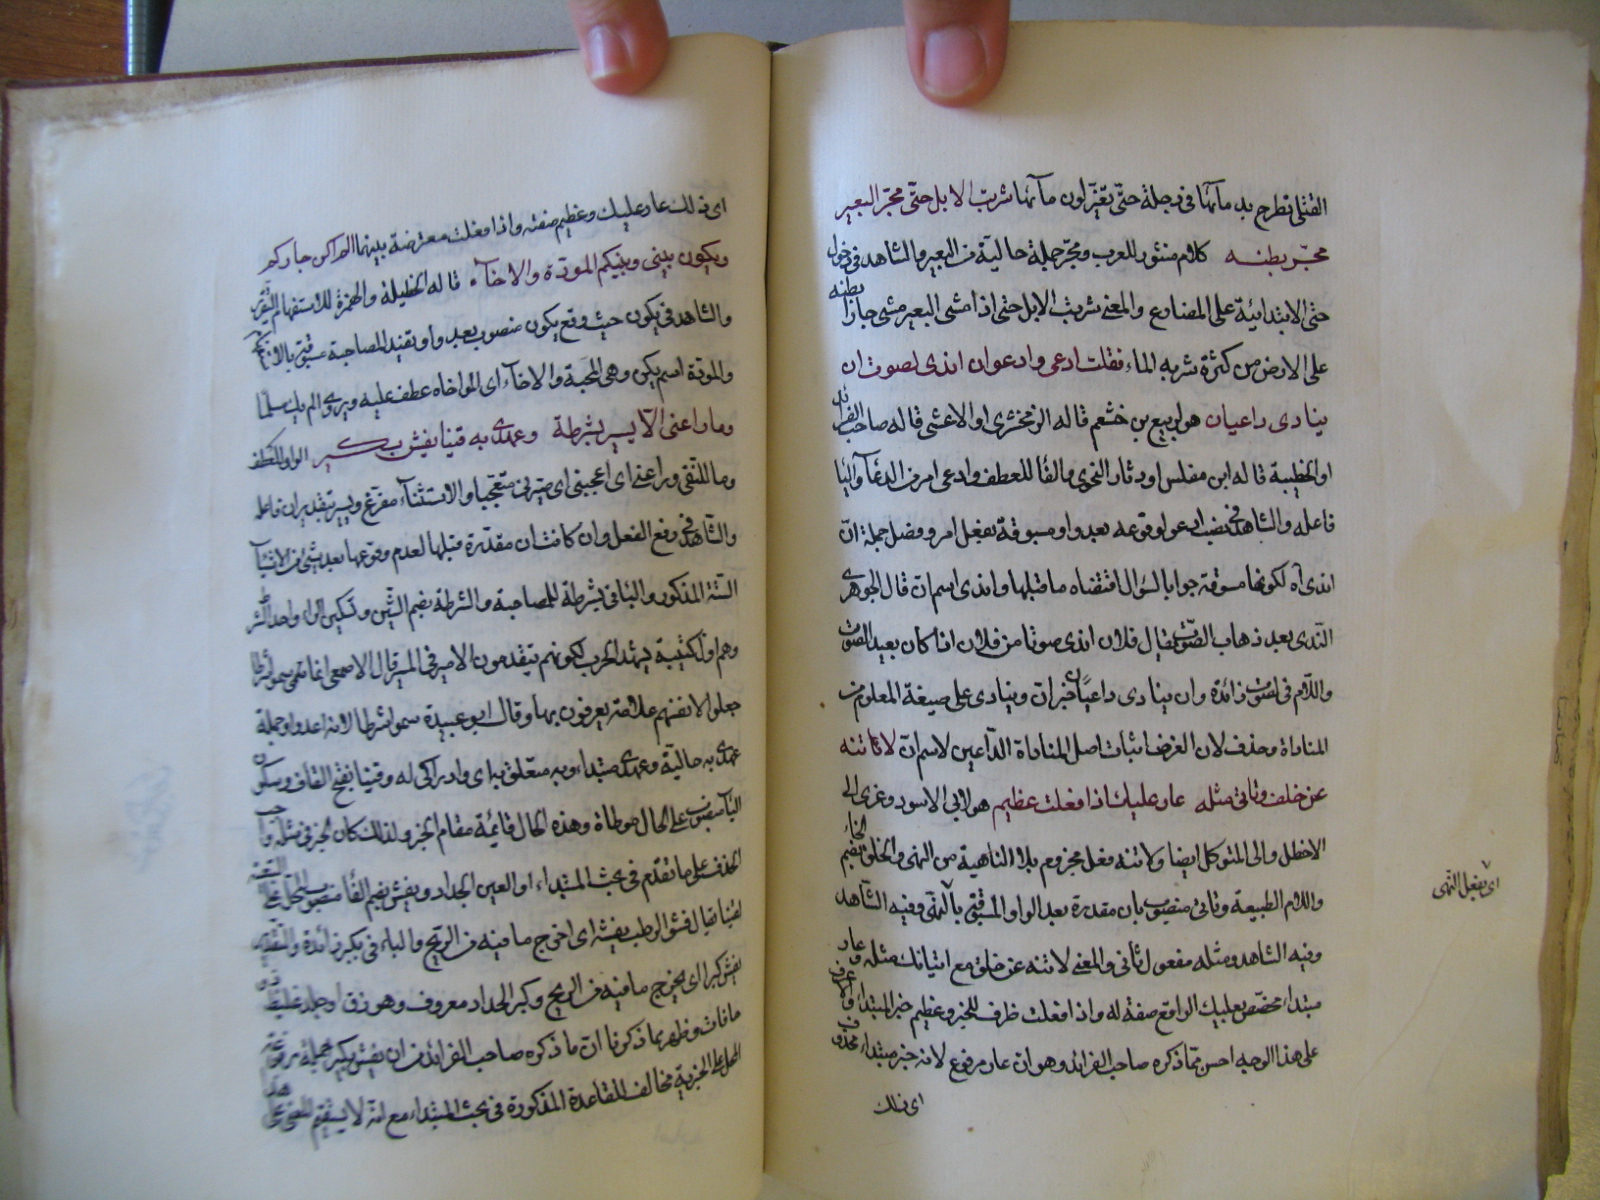 القتلى تطرح بد مآئها في دجلة حتى تغيّر لون مآئها شربت الابل حتّى مجرّ البعير
مجرّ بطنه كلام منثور للعرب ومجرّ جملة حالية من البعير والشاهد في دخول
حتّى الابتدائية على المضارع والمعنى شربت الابل حتى اذا مشى البعير مشى جارّا بطنه
على الارض من كثرة شربه الماء فقلت ادعى وادعو ان اندى لصوت ان
ينادى داعيان هو لربيع بن خثعم قاله الزمخشرى او الاعشى قاله صاحب الفرائد
او الحطيئة قاله ابن مفلس او دثار النحرى والفآ للعطف وادعى امر من الدعآ واليا
فاعله والشاهد في نصب ادعو لوقوعه بعد واو مسبوقة بفعل امر وفصل جملة انّ
اندى آه لكونها مسوقة جوابا لسؤال اقتضاه ما قبلها واندى اسم ان قال الجوهرى
الندى بعد ذهاب الصّوت يقال فلان اندى صوتا من فلان اذا كان بعيد الصّوت
واللّام في لصوت زائدة وان ينادى داعيان خبر انّ وينادى على صيغة المعلوم من
المناداة وحذف لان الغرض اثبات اصل المناداة الدّاعين لاسم انّ لا تنه
عن خلق وتاتى مثله عار عليك اذا فعلت عظيم هو لابي الاسود وعزى الى
الاخطل والى المتوكل ايضا ولا تنه فعل مجزوم بلا الناهية من النهى والخلق بضم الخاء
واللام الطبيعة وتاتى منصوب بان مقدرة بعد الواو المسبقة بالنهى وفيه الشّاهد
اى بفعل النهى
وفيه الشاهد ومثله مفعول تأتى والمعنى لا تنه عن خلق مع اتيانك مثله وعار
مبتداء مخصّص بعليك الواقع صفة له واذا فعلت ظرف للخبر وعظيم خبر المبتداء
على هذا الوجه احسن ممّا ذكره صاحب الفرائد وهو ان عار مرفوع لانه خبر مبتداء محذوف
اى ذلك
اى ذلك عار عليك وعظيم صفته واذا فعلت معترضة بينهما الم اك جاركم
ويكون بينى وبينكم المودّة والاخآء قاله الحطيئة والهمزة للاستفهام
والشاهد في يكون حيث وقع يكون منصوب بعد واو تفيد المصاحبة
والمودة اسم يكن وهى المحبة والاخآء اى المواخاه عطف عليه ويروى الم يك
وما راعنى الّا يسير بشرطة وعهدى به قينا يفشّ بكير الواو للعطف
وما للنفى وراعنى اى اعجبنى اى صيّرنى متعجبا والاستثناء مفرّغ ويسير بتقدير ان فاعله
والشّاهد في رفع الفعل وان كانت ان مقدّرة قبلها لعدم وقوعها بعد شئ من الاشيآ
الستة المذكور والبا في بشرطة للمصاحبة والشرطة بضم الشّين وتسكين الراء واحد الشرط
وهم اوّل كتيبة يشهد الحرب لكونهم يتقدمون الامير قال الاصمعى انما سموا شرطا
جعلوا لانفسهم علامة يعرفون بها وقال ابو عبيدة سموا شرطا لانه اعدوا وجملة
عهدى به حالية وعهدى مبتداء وبه متعلق به اى وادراكى له وقينا بفتح القاف وسكون
اليآ منصوب على الحال موطاة وهذه الحال قائمة مقام الخبر ولذلك كان الخبر في مثله واجب
الحذف على ما تقدّم في بحث المبتداء او القين الحداد ويفش بضم الفآ
لقينا يقال فشّ الوطب يفشّه اى اخرج ما فيه من الريح والباء في بكير زائدة والتقدير
يفش كيرا اى يخرج ما فيه من الريح وكير الحداد معروف وهو زق او جلد غليظ
مافات وظهر بما ذكرنا انّ ما ذكره صاحب الفرائد من ان يفش بكير جملة مرفوعة
المحل على الخبرية مخالف للقاعدة المذكورة في بحث المبتداء مع انّه لا يستقيم المعنى على هذا